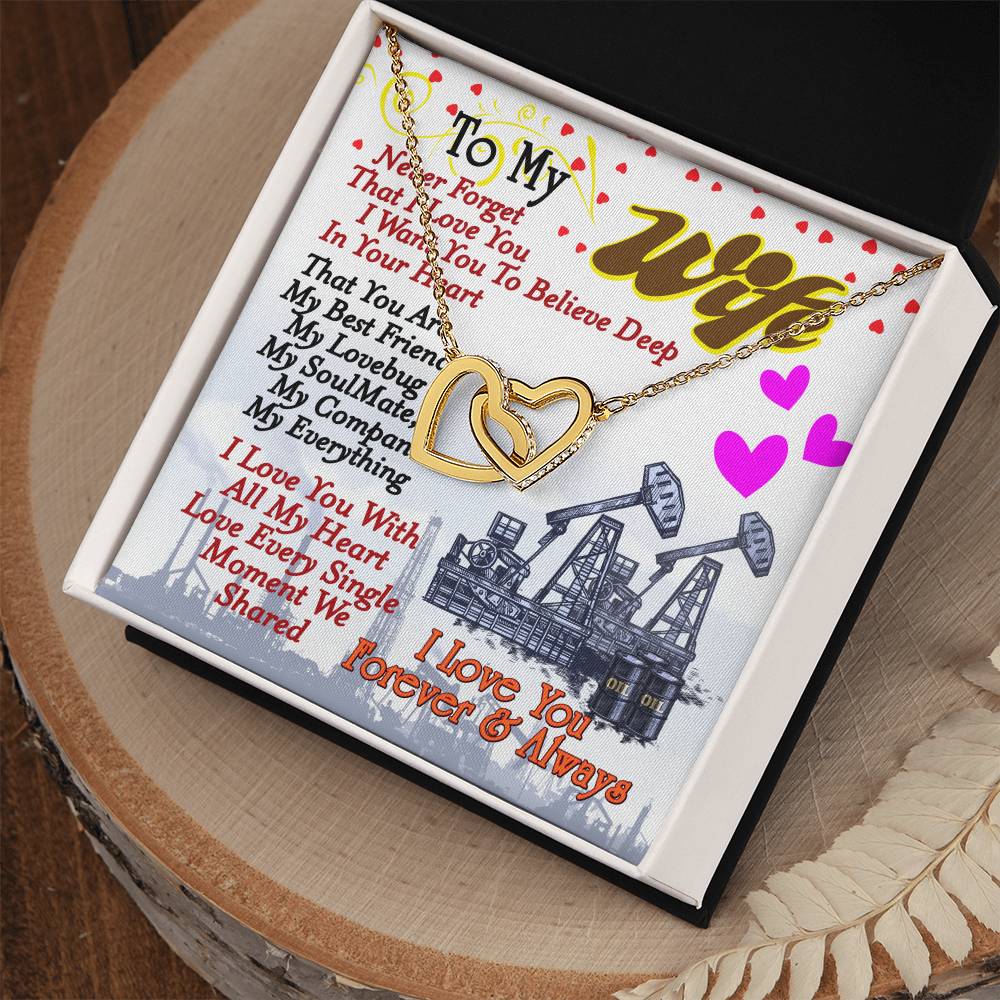 To My
Wife
Never Forget
That I Love You
I Want You To Believe Deep
In Your Heart
That You Ar
My Best Friend
My Lovebug
My SoulMate,
My Compan
My Everything
I Love You With
All My Heart
Love Every Single
Moment We
Shared
OIL OIL
I Love You
Forever & Always